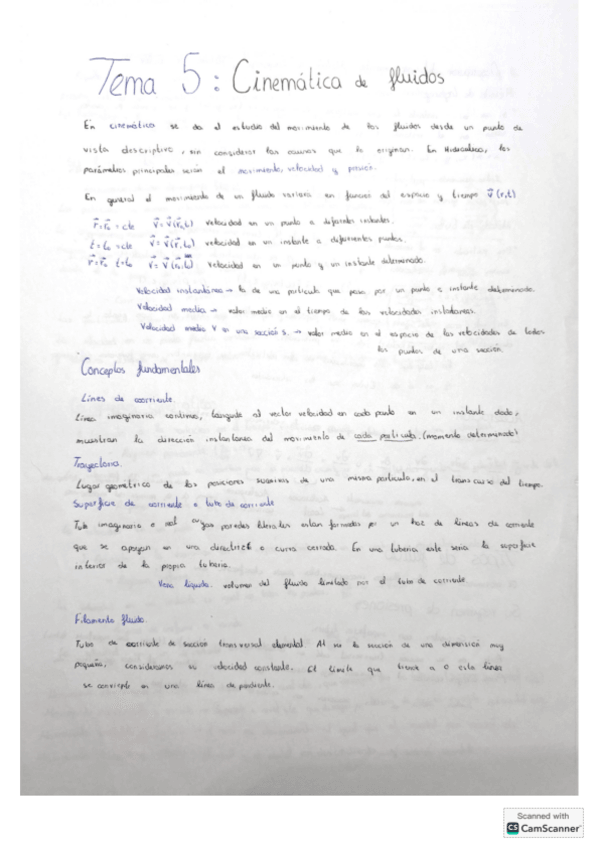 Tema 5: Cinemática de fluidos
En cinemática se da el estudio del movimiento de los fluidos desde un punto de
vista descriptivo, sin considerar las causas que lo originan. En Hidráulica, los
parámetros principales serán el movimiento, velocidad y presión.
En general el movimiento de un fluido variara en función del espacio y tiempo v⃗ (r,t)
r⃗=r⃗₀=cte v⃗=v⃗(r⃗₀,t) velocidad en un punto a diferentes instantes.
t=t₀=cte v⃗=v⃗(r⃗,t₀) velocidad en un instante a diferentes puntos.
r⃗=r⃗₀ t=t₀ v⃗=v⃗(r₀,t₀) velocidad en un punto y un instante determinado.
Velocidad instantánea → la de una partícula que pasa por un punto e instante determinado.
Velocidad media → valor medio en el tiempo de las velocidades instantáneas.
Velocidad media V en una sección s. → valor medio en el espacio de las velocidades de todos
los puntos de una sección.
Conceptos fundamentales
Lineas de corriente.
Línea imaginaria continua, tangente al vector velocidad en cada punto en un instante dado,
muestran la dirección instantánea del movimiento de cada partícula. (momento determinado)
Trayectoria.
Lugar geométrico de las posiciones sucesivas de una misma partícula, en el transcurso del tiempo.
Superficie de corriente o tubo de corriente
Tubo imaginario o real cuyas paredes laterales estan formadas por un haz de líneas de corriente
que se apoyan en una directriz o curva cerrada. En una tubería este sería la superficie
interior de la propia tubería.
Vena líquida. volumen del fluido limitado por el tubo de corriente.
Filamento fluido.
Tubo de corriente de sección transversal elemental. Al ser la sección de una dimensión muy
pequeña, consideramos su velocidad constante. El límite que tiende a 0 esta línea
se convierte en una línea de